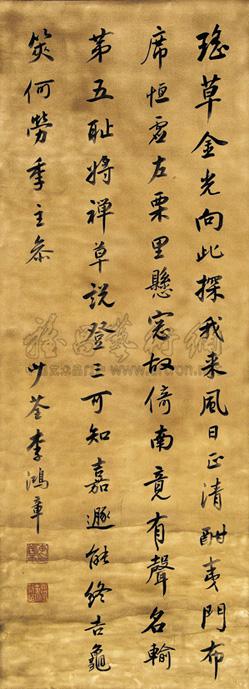 瑤草金光向此探我来風日正清酣夷門布
席恒虛左栗里懸窓故倚南竟有聲名輸
第五耻将禅草説登三可知嘉遯能終吉龜
筴何勞季主参
少荃李鴻章